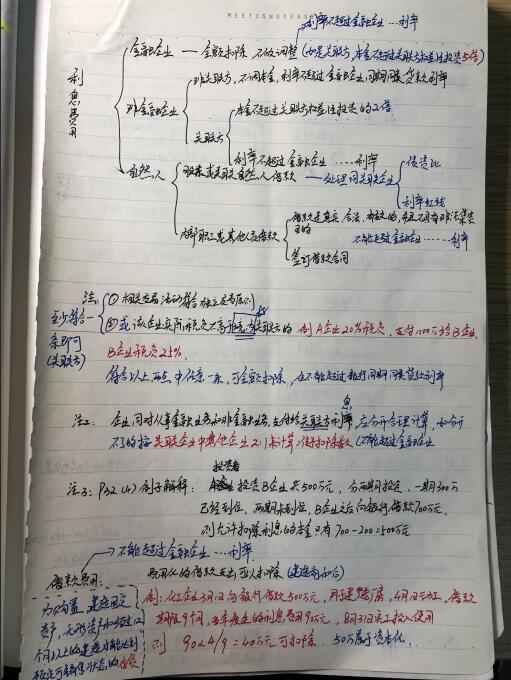 MEETISNOTEASY
利率不超过金融企业…利率
金融企业 — 全额扣除 不做调整 (如是关联方 本金不超过关联方权益性投资5倍)
利息费用
非金融企业
非关联方,不调本金,利率不超过金融企业同期同类贷款利率
关联方
本金不超过关联方权益性投资的2倍
利率不超过金融企业……利率
自然人
股东或关联自然人借款 — 处理同关联企业
债资比
利率红线
内部职工或其他人员借款
借款是真实、合法、有效的,并且不具有非法集资
目的
不能超过金融企业……利率
签订借款合同
注1:
至少符合一
条即可
(关联方)
① 相关交易活动符合独立交易原则
② 或该企业实际税负不高于境内关联方的 例 A企业20%税负,支付100万给B企业,
B企业税负25%.
符合以上两点中任意一条,可全额扣除,但不能超过银行同期同类贷款利率
注2: 企业同时从事金融业务和非金融业务,支付给关联方利息,应分开合理计算,如分开
不了的按关联企业中其他企业2:1来计算准予扣除数(不能超过金融企业
注3: P32 (4) 例子解释: 投资者 投资B企业共500万元,分两期投资,一期300万
已经到位,两期未到位,B企业之后向银行借款700万元,
则允许扣除利息的本金只有700-200=500万元
不能超过金融企业…利率
借款费用:
费用化的借款支出可以扣除(建造前和后)
为购置、建造固定
资产、无形资产和经过12
个月以上的建造才能达到
预定可销售状态的存货
例:化工企业3月1日向银行借款500万元,用于建造厂房,4月1日动工,借款
期限9个月,当年发生的利息费用90万元,8月31日完工投入使用
则 90×4/9=40万元可扣除 50万属于资本化.